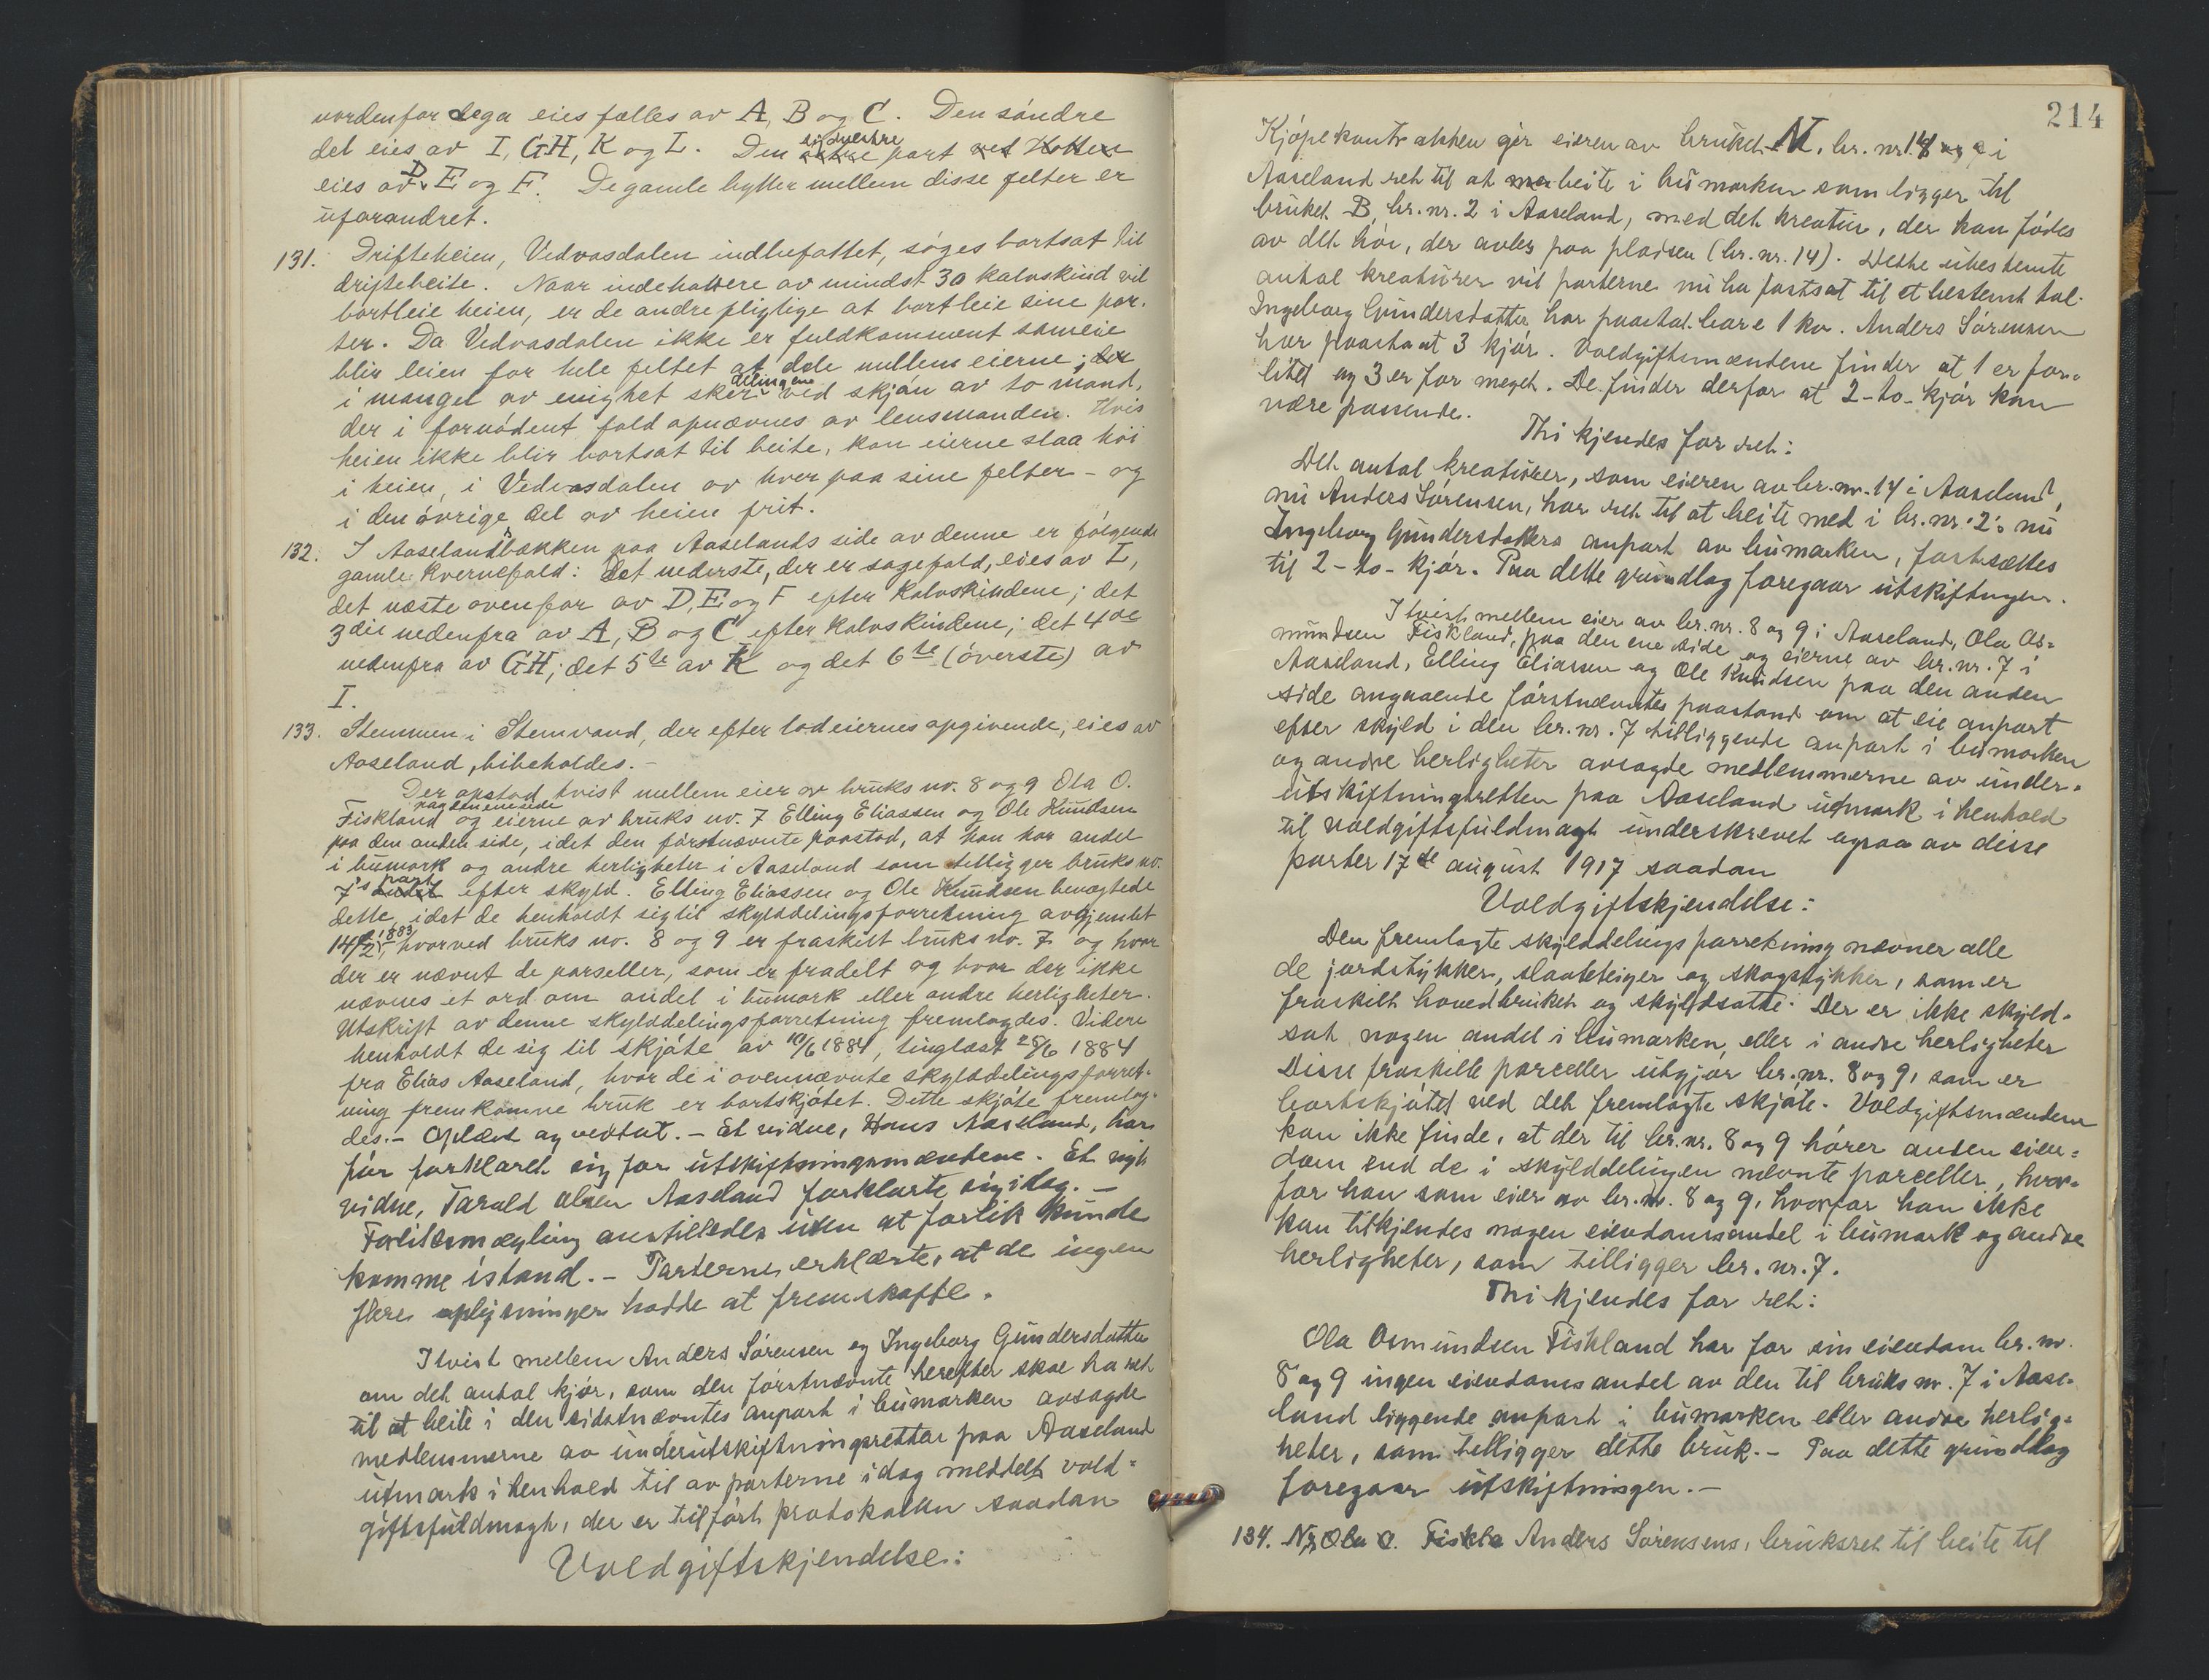 nordenfor Lega eies fælles av A, B og C. Den söndre
del eies av I, GH, K og L. Den sydvestre part ved Hotten
eies av D, E og F. De gamle bytter mellem disse felter er
uforandret.
131. Drifteheien, Vedvasdalen indbefattet, söges bortsat til
driftebeite. Naar indehavere av mindst 30 kalvskind vil
bortleie heien, er de andre pligtige at bortleie sine par-
ter. Da Vedvasdalen ikke er fuldkomment sameie
blir leien for hele feltet at dele mellem eierne; der
i mangel av enighet sker delingene ved skjön av to mænd,
der i fornödent fald opnævnes av lensmanden. Hvis
heien ikke blir bortsat til beite, kan eierne slaa höi
i heien, i Vedvasdalen av hver paa sine felter - og
i den övrige del av heien frit.
132. I Aaselandsbækken paa Aaselands side av denne er fölgende
gamle kvernefald: Det nederste, der er sagefald, eies av I,
det næste ovenfor av D, E og F efter kalvskindene; det
3die nedenfra av A, B og C efter kalvskindene; det 4de
nedenfra av GH; det 5te av K og det 6te (överste) av
I.
133. Stemmen i Stemvand, der efter lodeiernes opgivende, eies av
Aaseland, bibeholdes. -
Der opstod tvist mellem eier av bruks no. 8 og 9 Ola O.
Fiskland paa den ene side og eierne av bruks no. 7 Elling Eliassen og Ole Knudsen
paa den anden side, idet den förstnævnte paastod, at han har andel
i bumark og andre herligheter i Aaseland som tilligger bruks no.
7's part efter skyld. Elling Eliassen og Ole Knudsen benegtede
dette, idet de henholdt sig til skylddelingsforretning avhjemlet
14/2 1883, hvorved bruks no. 8 og 9 er fraskilt bruks no. 7 og hvor
der er nævnt de parseller, som er fradelt og hvor der ikke
nævnes et ord om andel i bumark eller andre herligheter.
Utskrift av denne skylddelingsforretning fremlagdes. Videre
henholdt de sig til skjöte av 10/6 1884, tinglæst 28/6 1884
fra Elias Aaseland, hvor de i ovennævnte skylddelingsforret-
ning fremkomne bruk er bortskjötet. Dette skjöte fremlag-
des. - Oplæst og vedtat. - Et vidne, Hans Aaseland, har
för forklaret sig for utskiftningsmændene. Et nyt
vidne, Tarald Olsen Aaseland forklarte sig idag. -
Forliksmægling anstilledes uten at forlik kunde
komme istand. - Parterne erklærte, at de ingen
flere oplysninger hadde at fremskaffe.
I tvist mellem Anders Sörensen og Ingeborg Gundersdatter
om det antal kjör, som den förstnævnte herefter skal ha ret
til at beite i den sidstnævntes anpart i bumarken avsagde
medlemmerne av underutskiftningsretten paa Aaseland
utmark i henhold til av parterne idag meddelt vold-
giftsfuldmagt, der er tilfört protokollen saadan
Voldgiftskjendelse:
214
Kjöpekontrakten gir eieren av bruket N, br. nr. 14 i
Aaseland ret til at beite i bumarken som ligger til
bruket B, br. nr. 2 i Aaseland, med det kreatur, der kan födes
av det höi, der avles paa pladsen (br. nr. 14). Dette ubestemte
antal kreaturer vil parterne nu ha fastsat til et bestemt tal.
Ingeborg Gundersdatter har paastat bare 1 ku. Anders Sörensen
har paastaat 3 kjör. Voldgiftsmændene finder at 1 er for
litet og 3 er for meget. De finder derfor at 2 - to - kjör kan
være passende.
Thi kjendes for ret:
Det antal kreaturer, som eieren av br. nr. 14 i Aaseland,
nu Anders Sörensen, har ret til at beite med i br. nr. 2's nu
Ingeborg Gundersdatters anpart av bumarken, fastsættes
til 2 - to - kjör. Paa dette grundlag foregaar utskiftningen.
I tvist mellem eier av br. nr. 8 og 9 i Aaseland, Ola Os-
mundsen Fiskland, paa den ene side og eierne av br. nr. 7 i
Aaseland, Elling Eliassen og Ole Knudsen paa den anden
side angaaende förstnævntes paastand om at eie anpart
efter skyld i den br. nr. 7 tilliggende anpart i bumarken
og andre herligheter avsagde medlemmerne av under-
utskiftningsretten paa Aaseland utmark i henhold
til voldgiftsfuldmagt underskrevet ogsaa av disse
parter 17de august 1917 saadan
Voldgiftskjendelse:
Den fremlagte skylddelingsforretning nævner alle
de jordstykker, slaatteteiger og skogstykker, som er
fraskilt hovedbruket og skyldsatte. Der er ikke skyld-
sat nogen andel i bumarken, eller i andre herligheter
Disse fraskilte parceller utgjör br. nr. 8 og 9, som er
bortskjötet ved det fremlagte skjöte. Voldgiftsmændene
kan ikke finde, at der til br. nr. 8 og 9 hörer anden eien-
dom end de i skylddelingen nævnte parceller, hvor-
for han som eier av br. nr. 8 og 9, hvorfor han ikke
kan tilkjendes nogen eiendomsandel i bumark og andre
herligheter, som tilligger br. nr. 7.
Thi kjendes for ret:
Ola Osmundsen Fiskland har for sin eiendom br. nr.
8 og 9 ingen eiendomsandel av den til bruks nr. 7 i Aase-
land liggende anpart i bumarken eller andre herlig-
heter, som tilligger dette bruk. - Paa dette grundlag
foregaar utskiftningen. -
134. Ola O. Fiskla Anders Sörensens, bruksret til beite til